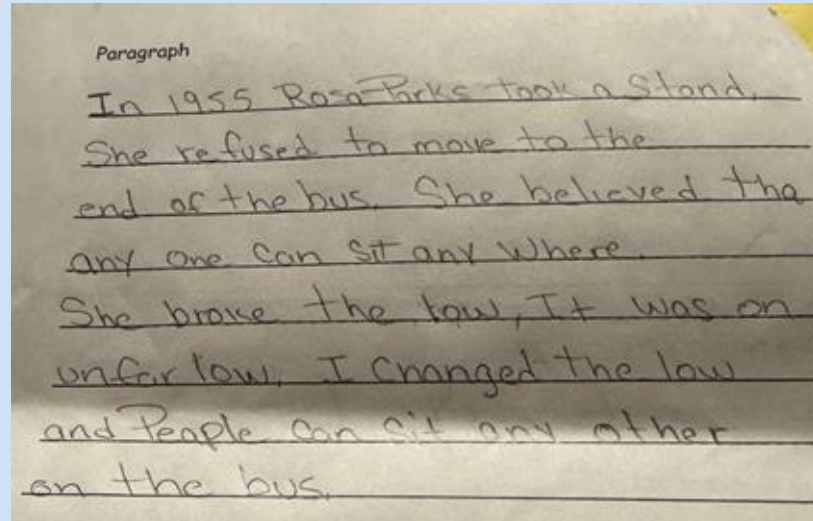 Paragraph
In 1955 Rosa Parks took a Stand.
She refused to move to the
end of the bus. She believed tha
any one can sit any Where.
She broke the law, It was an
unfar law. I Changed the law
and People can sit any other
on the bus.